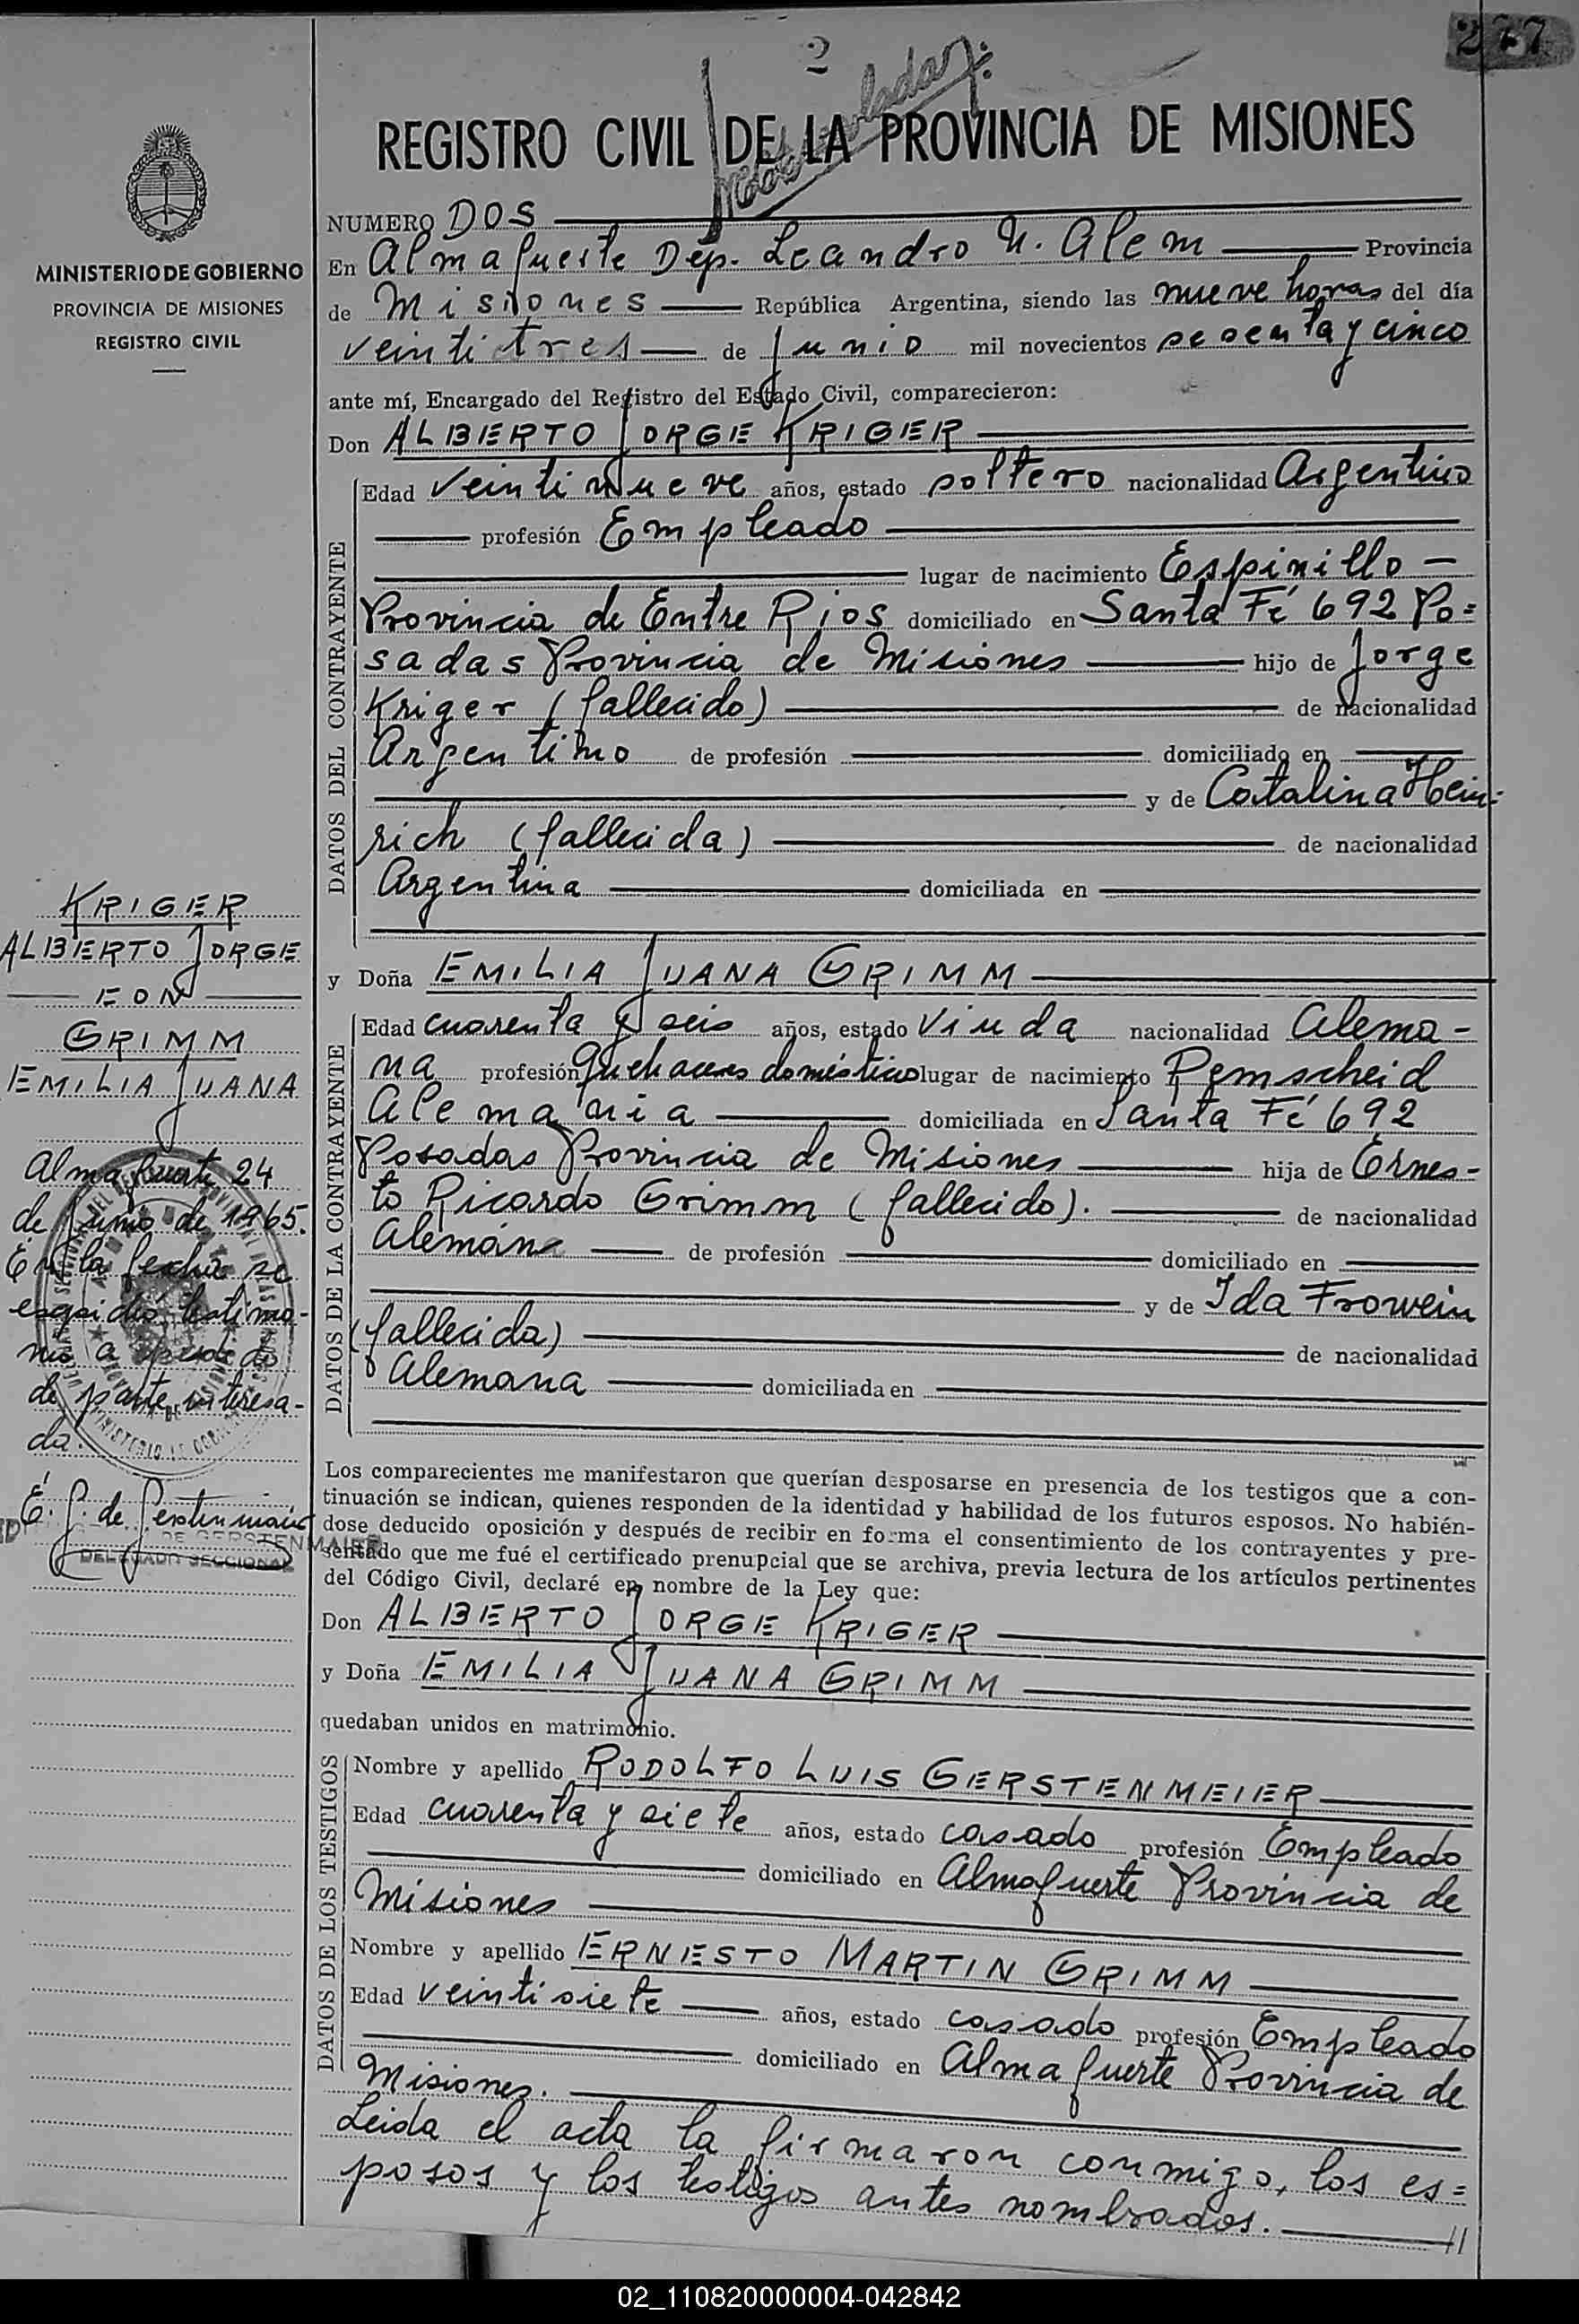 277
2
REGISTRO CIVIL DE LA PROVINCIA DE MISIONES
MINISTERIO DE GOBIERNO
PROVINCIA DE MISIONES
REGISTRO CIVIL
NUMERO DOS
En Almafuerte Dep. Leandro N. Alem Provincia
de Misiones República Argentina, siendo las nueve horas del día
veintitres de Junio mil novecientos sesenta y cinco
ante mí, Encargado del Registro del Estado Civil, comparecieron:
Don ALBERTO JORGE KRIGER
DATOS DEL CONTRAYENTE
Edad veintinueve años, estado soltero nacionalidad Argentino
profesión Empleado
lugar de nacimiento Espinillo -
Provincia de Entre Rios domiciliado en Santa Fé 692 Po=
sadas Provincia de Misiones hijo de Jorge
Kriger (fallecido) de nacionalidad
Argentino de profesión domiciliado en
y de Catalina Hein=
rich (fallecida) de nacionalidad
Argentina domiciliada en
y Doña EMILIA JUANA GRIMM
DATOS DE LA CONTRAYENTE
Edad cuarenta y seis años, estado Viuda nacionalidad Alema-
na profesión Quehaceres domésticos lugar de nacimiento Remscheid
Alemania domiciliada en Santa Fé 692
Posadas Provincia de Misiones hija de Ernes-
to Ricardo Grimm (fallecido). de nacionalidad
Alemán de profesión domiciliado en
y de Ida Frowein
(fallecida) de nacionalidad
Alemana domiciliada en
Los comparecientes me manifestaron que querían desposarse en presencia de los testigos que a con-
tinuación se indican, quienes responden de la identidad y habilidad de los futuros esposos. No habién-
dose deducido oposición y después de recibir en forma el consentimiento de los contrayentes y pre-
sentado que me fué el certificado prenupcial que se archiva, previa lectura de los artículos pertinentes
del Código Civil, declaré en nombre de la Ley que:
Don ALBERTO JORGE KRIGER
y Doña EMILIA JUANA GRIMM
quedaban unidos en matrimonio.
DATOS DE LOS TESTIGOS
Nombre y apellido RODOLFO LUIS GERSTENMEIER
Edad cuarenta y siete años, estado casado profesión Empleado
domiciliado en Almafuerte Provincia de
Misiones
Nombre y apellido ERNESTO MARTIN GRIMM
Edad veintisiete años, estado casado profesión Empleado
domiciliado en Almafuerte Provincia de
Misiones.
Leida el acta la firmaron conmigo, los es=
posos y los testigos antes nombrados. //
KRIGER
ALBERTO JORGE
CON
GRIMM
EMILIA JUANA
Almafuerte, 24
de Junio de 1965.
En la fecha se
expidió testimo-
nio a pedido
de parte interesa-
da.
E. J. de Gerstenmaier
DE GERSTENMAIER
DELEGADO SECCIONAL
02_110820000004-042842